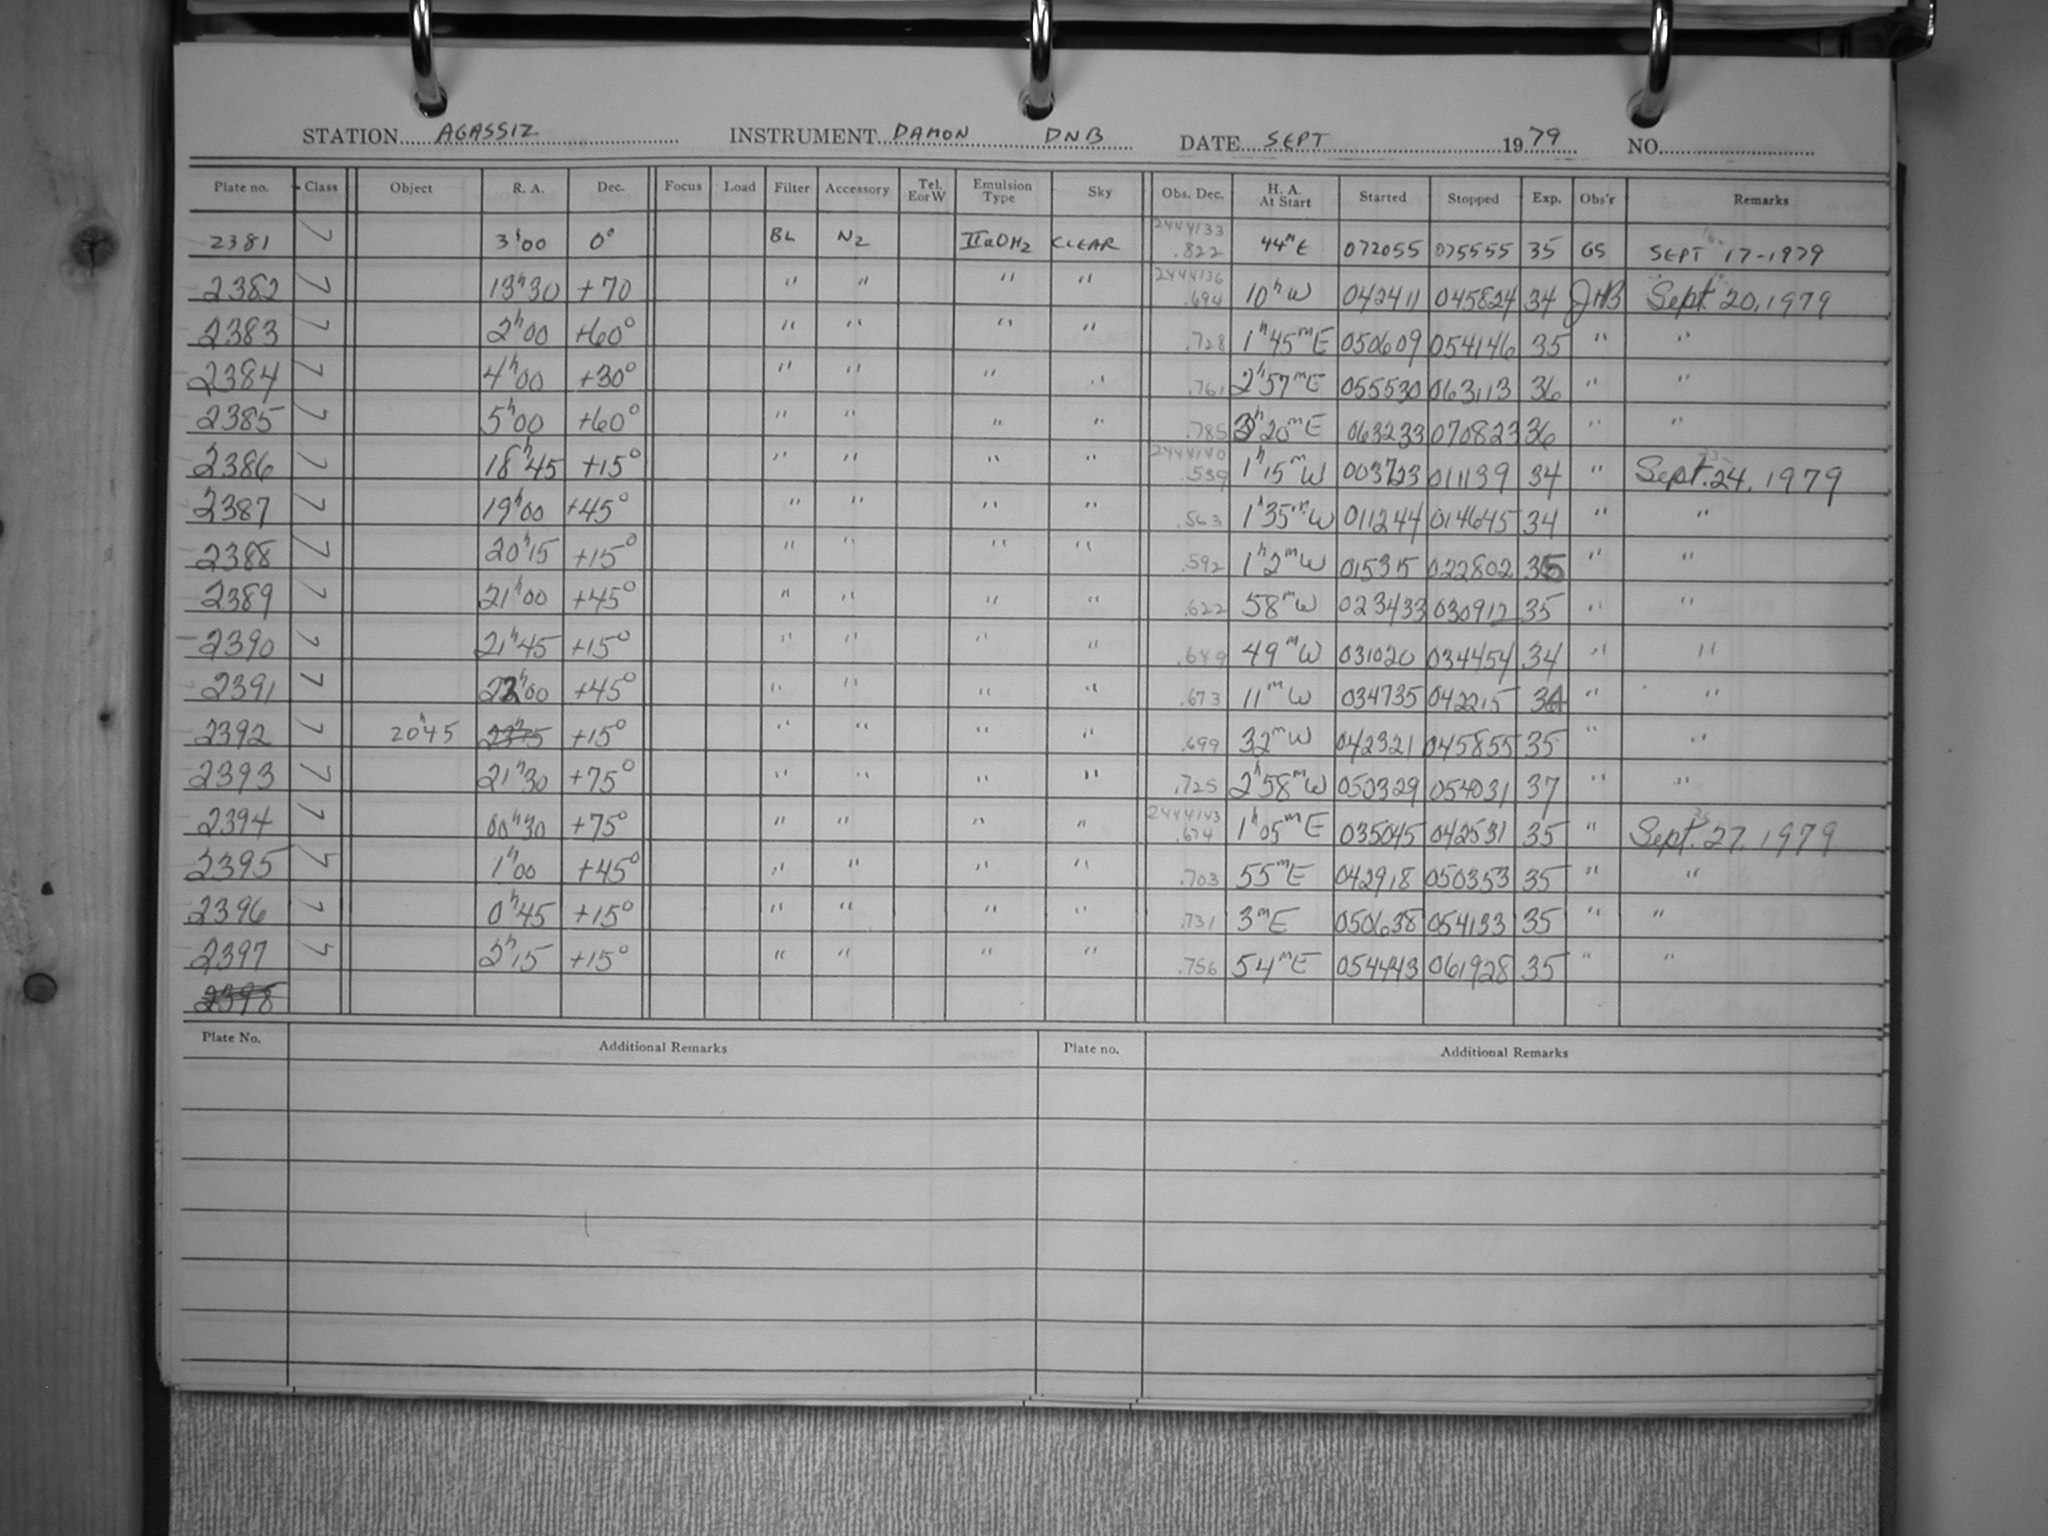 STATION AGASSIZ INSTRUMENT DAMON DNB DATE SEPT 1979 NO.
Plate no. Class Object R. A. Dec. Focus Load Filter Accessory Tel. E or W Emulsion Type Sky Obs. Dec. H. A. At Start Started Stopped Exp. Obs'r Remarks
2381 7 3h00 0° BL N2 IIaOH2 CLEAR 2444133 .822 44m E 072055 075555 35 GS SEPT 17-1979
2382 7 13h30 +70 " " " " 2444136 .694 10h W 042411 045824 34 JHB Sept. 20, 1979
2383 7 2h00 +60° " " " " .728 1h45m E 050609 054146 35 " "
2384 7 4h00 +30° " " " " .761 2h57m E 055530 063113 36 " "
2385 7 5h00 +60° " " " " .785 3h20m E 063233 070823 36 " "
2386 7 18h45 +15° " " " " 2444140 .539 1h15m W 003723 011139 34 " Sept. 24, 1979
2387 7 19h00 +45° " " " " .563 1h35m W 011244 014645 34 " "
2388 7 20h15 +15° " " " " .592 1h2m W 015315 022802 35 " "
2389 7 21h00 +45° " " " " .622 58m W 023433 030912 35 " "
2390 7 21h45 +15° " " " " .649 49m W 031020 034454 34 " "
2391 7 22h00 +45° " " " " .673 11m W 034735 042215 34 " "
2392 7 20h45 +15° " " " " .699 32m W 042321 045855 35 " "
2393 7 21h30 +75° " " " " .725 2h58m W 050329 054031 37 " "
2394 7 00h30 +75° " " " " 2444143 .674 1h05m E 035045 042531 35 " Sept. 27, 1979
2395 7 1h00 +45° " " " " .703 55m E 042918 050353 35 " "
2396 7 0h45 +15° " " " " .731 3m E 050638 054133 35 " "
2397 7 2h15 +15° " " " " .756 54m E 054443 061928 35 " "
2398
Plate No. Additional Remarks Plate no. Additional Remarks